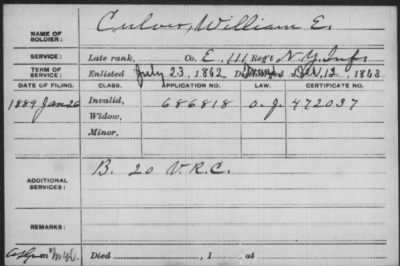 NAME OF SOLDIER: Culver, William E.
SERVICE: Late rank, Co. E, 111 Reg't N.Y. Inf.
TERM OF SERVICE: Enlisted July 23, 1862 1863
DATE OF FILING. CLASS. APPLICATION NO. LAW. CERTIFICATE NO.
1889 Jan 26 Invalid, 686818 O.J. 472037
Widow,
Minor,
ADDITIONAL SERVICES: B. 20 V.R.C.
REMARKS:
Died , 1 , at